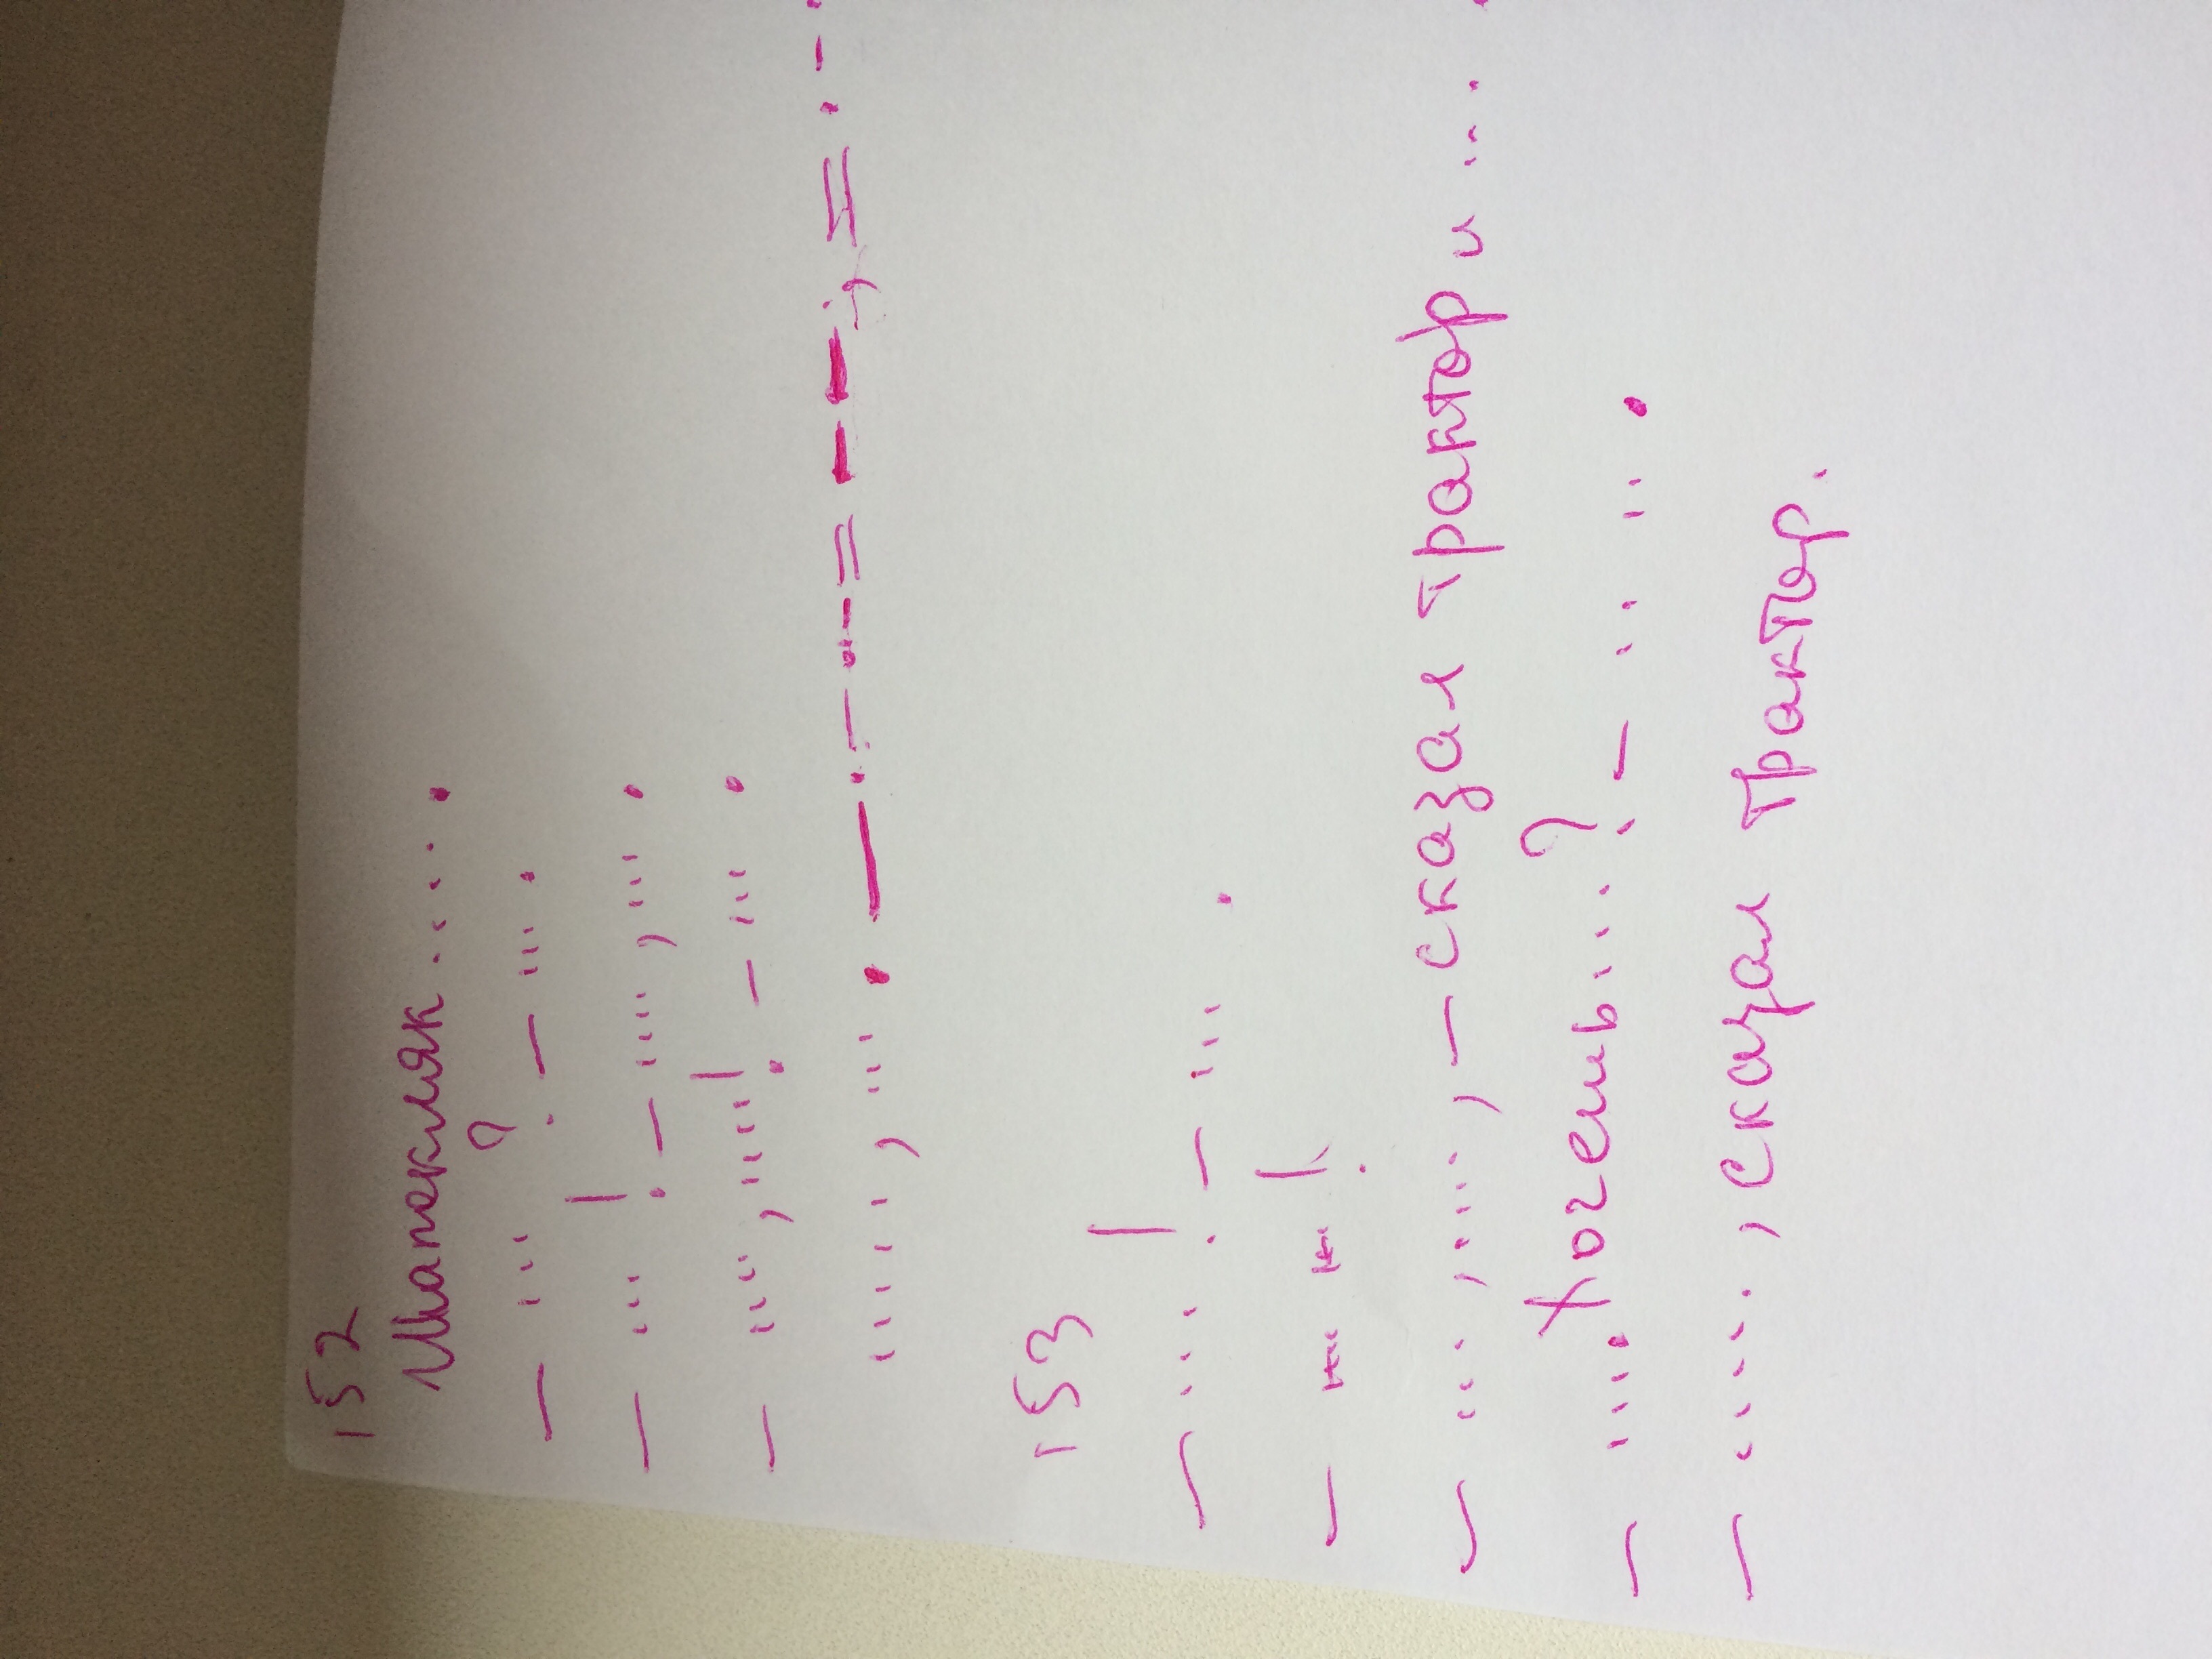 152
Шапокляк . . . . .
— ... ? — ... .
— ... ! — .... , ... .
— .... , .... ! — ... .
..... , ... .
153
— .... ! — ... .
— ... ... !
— .... , .... , — сказал трактор и ... .
— .... Хочешь ....? — .... .
— ..... , сказал трактор.